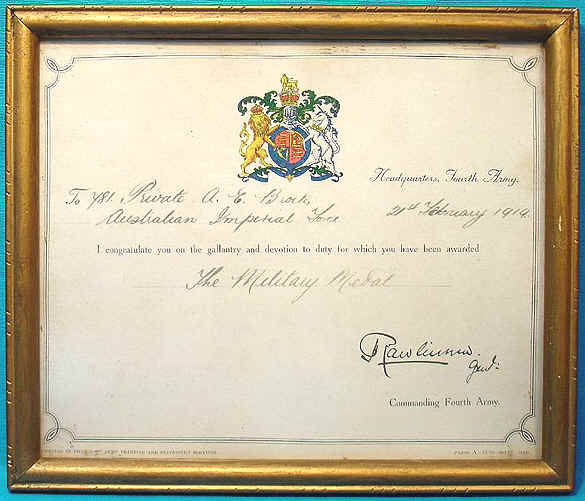 Headquarters, Fourth Army.
To 781. Private A. E. Brock,
Australian Imperial Force
21st February 1919.
I congratulate you on the gallantry and devotion to duty for which you have been awarded
The Military Medal
Rawlinson.
Genl.
Commanding Fourth Army.
PRINTED IN FRANCE BY ARMY PRINTING AND STATIONERY SERVICES
PRESS A